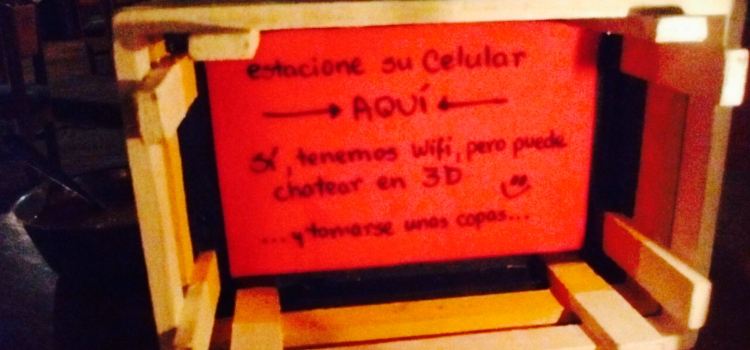 estacione su Celular
AQUÍ
Sí, tenemos Wifi, pero puede
chatear en 3D
...y tomarse unas copas...